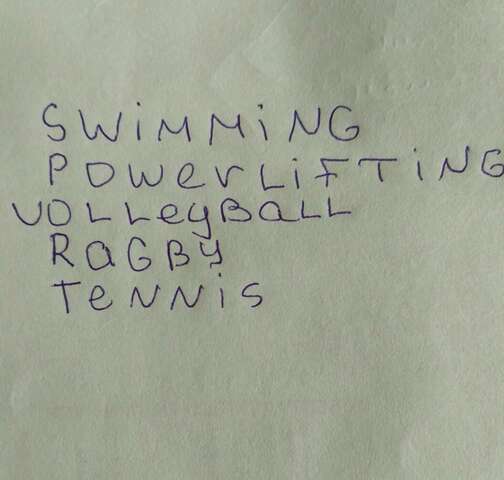 SWiMMiNG
POWerLiFTiNG
VOLLeyBaLL
RaGBy
TeNNiS